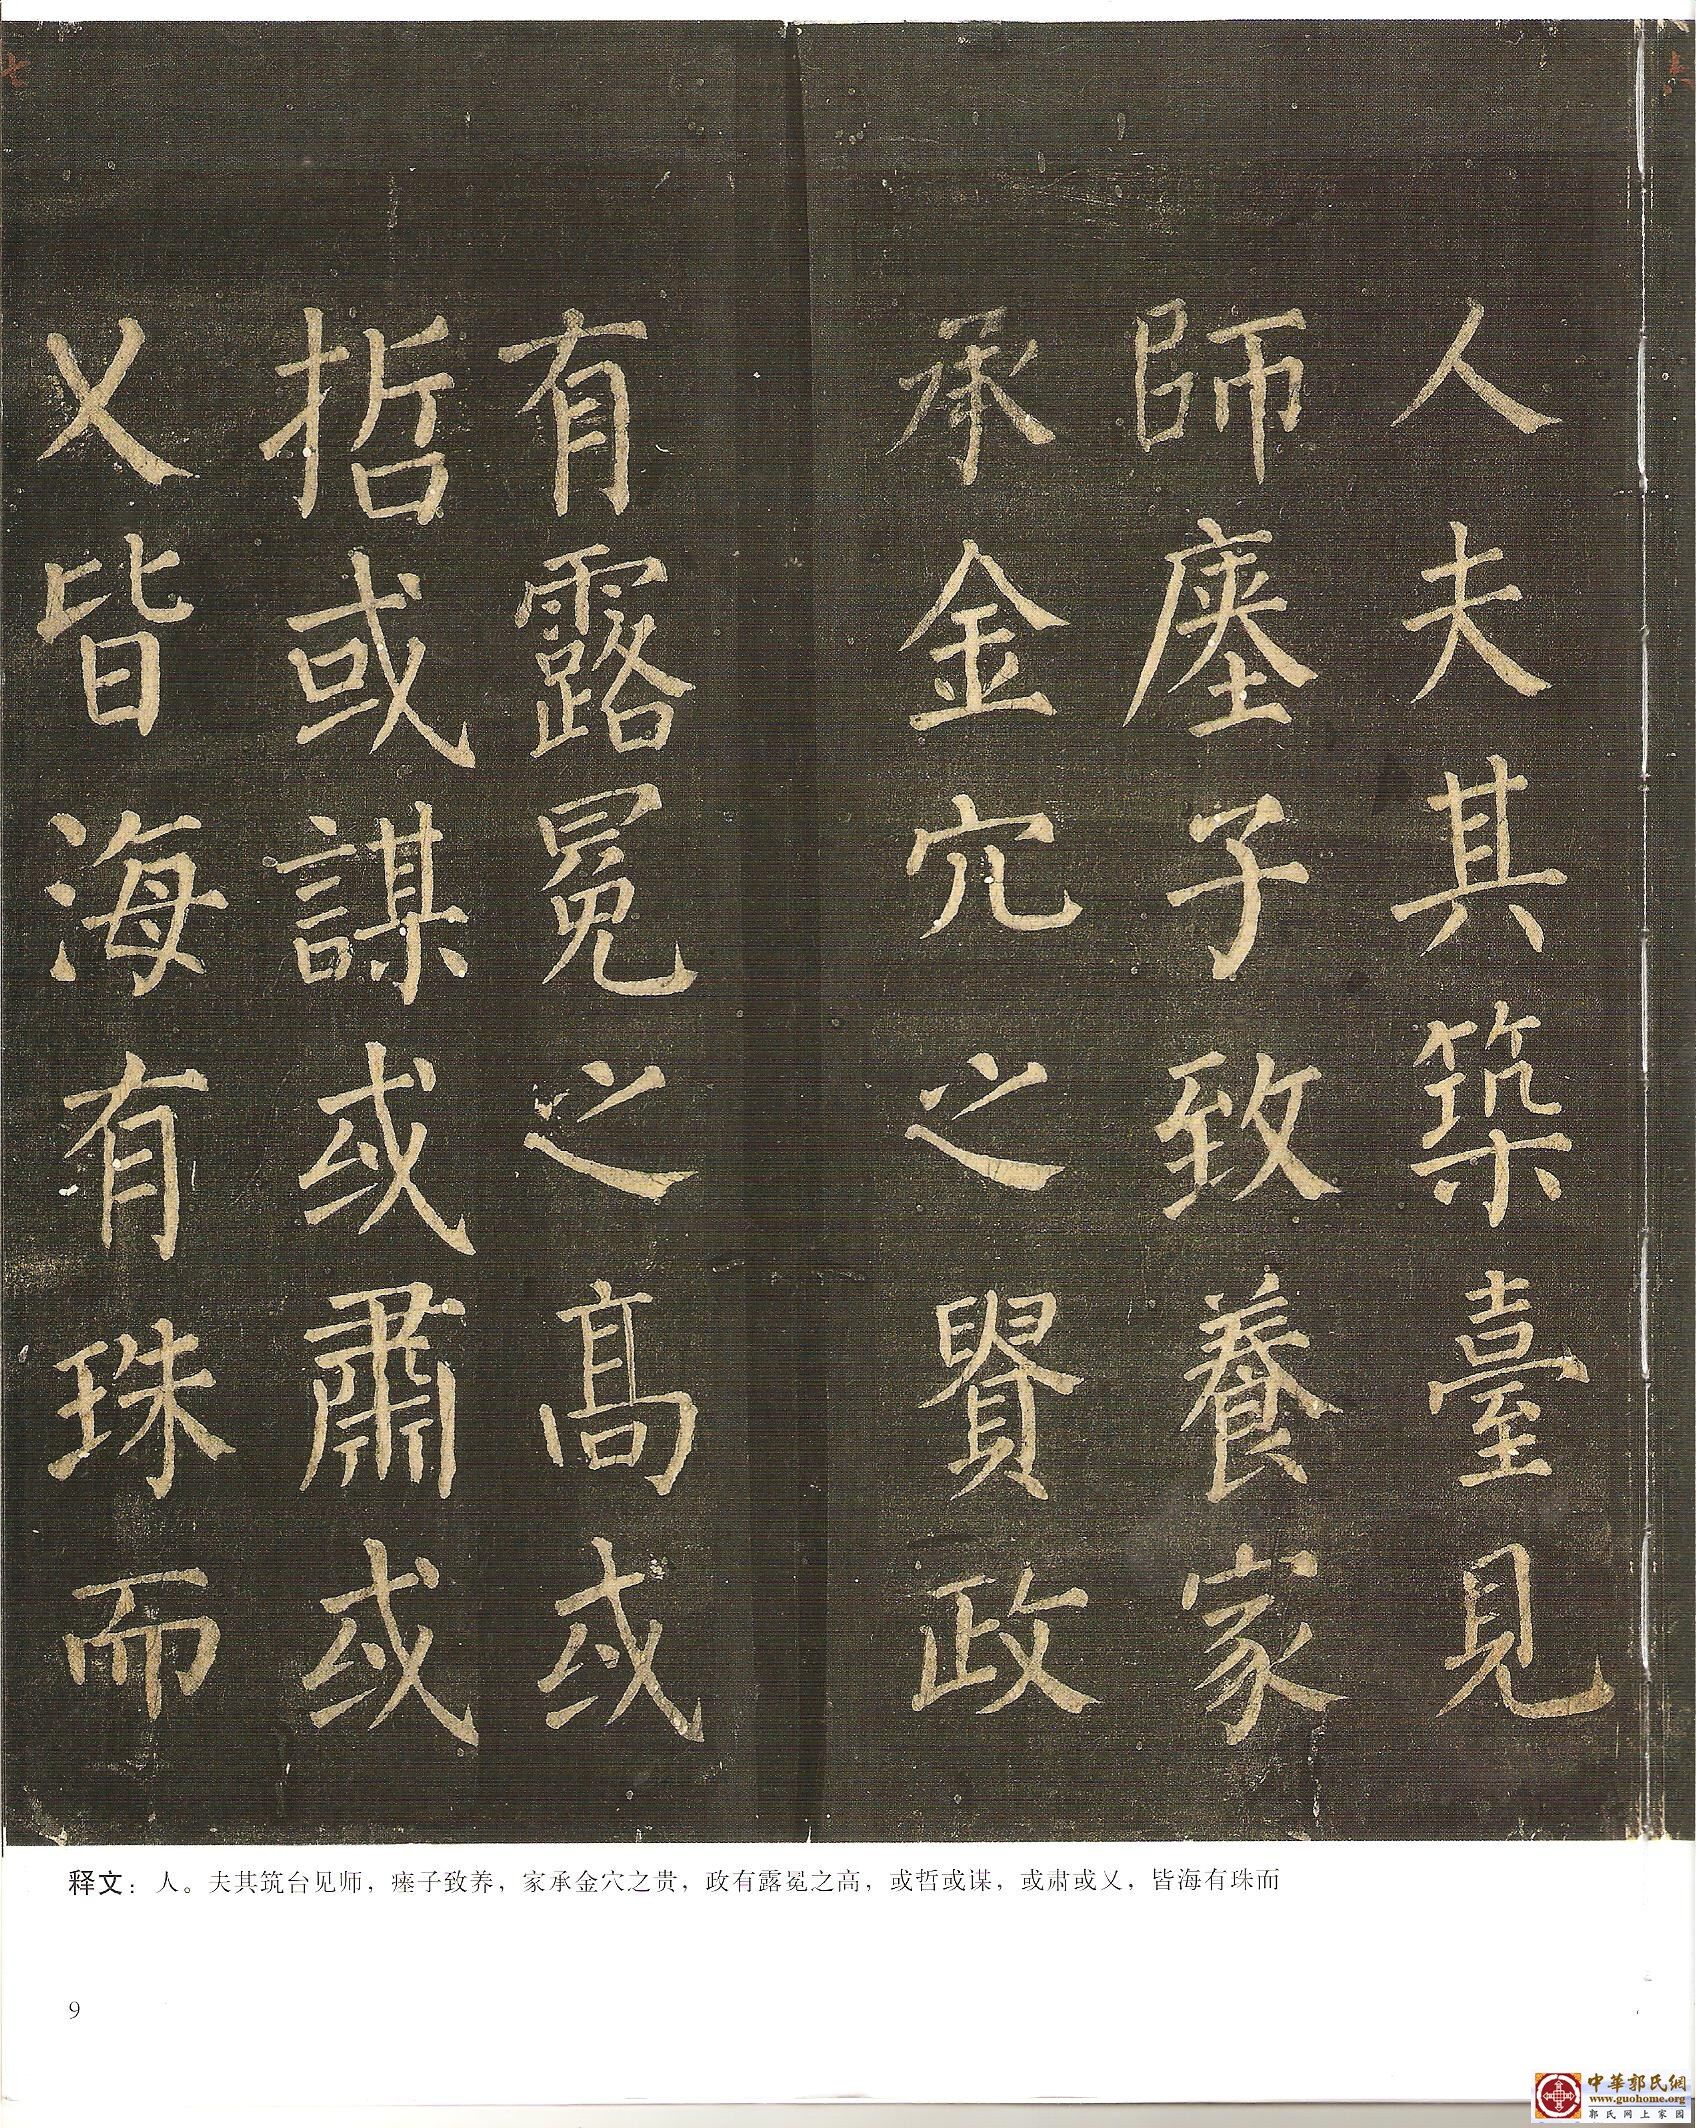 人夫其築臺見
師㙻子致養家
承金穴之貴政
有露冕之高或
哲或謀或肅或
乂皆海有珠而
释文：人。夫其筑台见师，瘗子致养，家承金穴之贵，政有露冕之高，或哲或谋，或肃或乂，皆海有珠而
9
中華郭氏網
www.guohome.org
郭氏网上家园